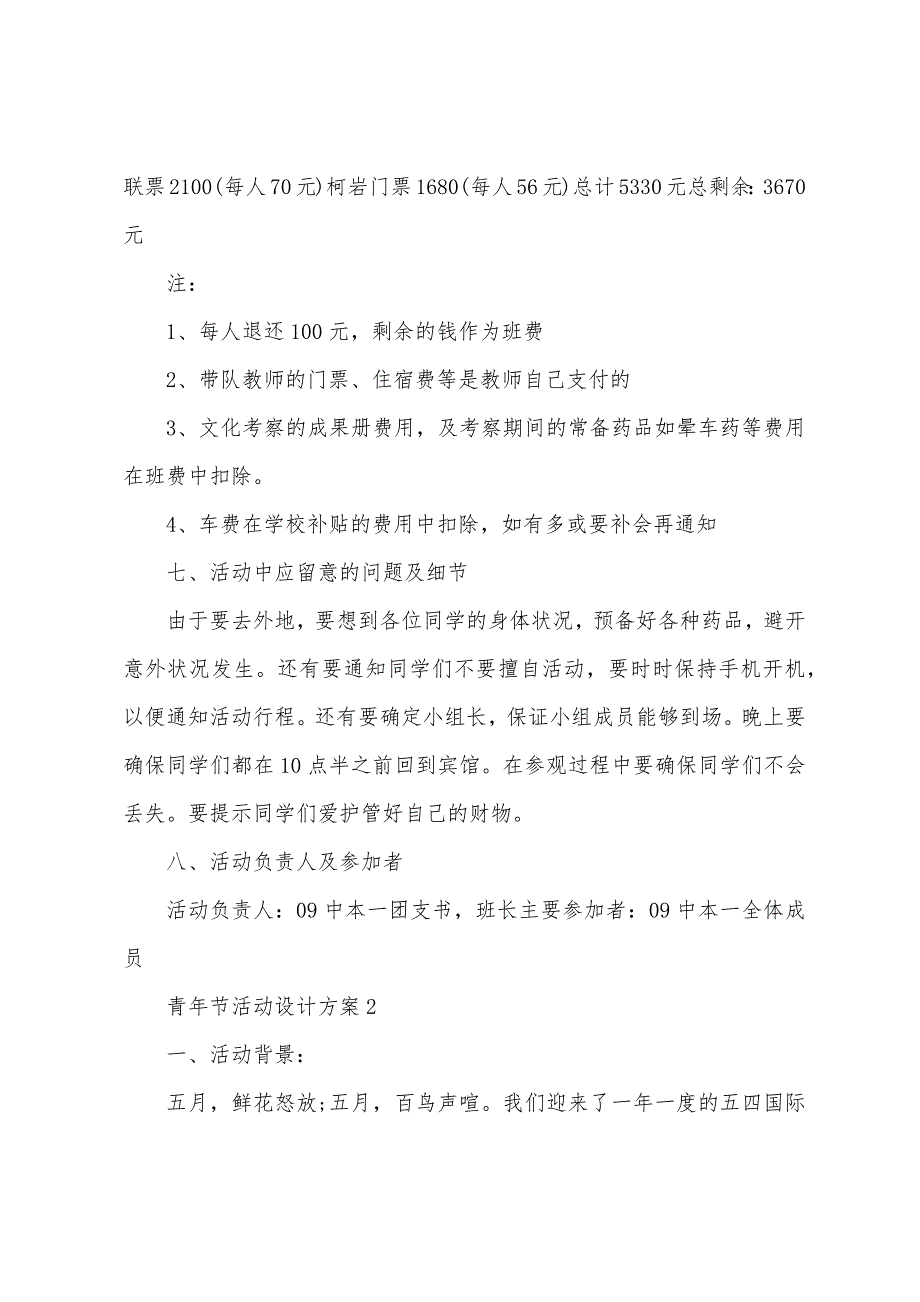 联票2100(每人70元)柯岩门票1680(每人56元)总计5330元总剩余：3670
元
注：
1、每人退还100元，剩余的钱作为班费
2、带队教师的门票、住宿费等是教师自己支付的
3、文化考察的成果册费用，及考察期间的常备药品如晕车药等费用
在班费中扣除。
4、车费在学校补贴的费用中扣除，如有多或要补会再通知
七、活动中应留意的问题及细节
由于要去外地，要想到各位同学的身体状况，预备好各种药品，避开
意外状况发生。还有要通知同学们不要擅自活动，要时时保持手机开机，
以便通知活动行程。还有要确定小组长，保证小组成员能够到场。晚上要
确保同学们都在10点半之前回到宾馆。在参观过程中要确保同学们不会
丢失。要提示同学们爱护管好自己的财物。
八、活动负责人及参加者
活动负责人：09中本一团支书，班长主要参加者：09中本一全体成
员
青年节活动设计方案2
一、活动背景：
五月，鲜花怒放;五月，百鸟声喧。我们迎来了一年一度的五四国际